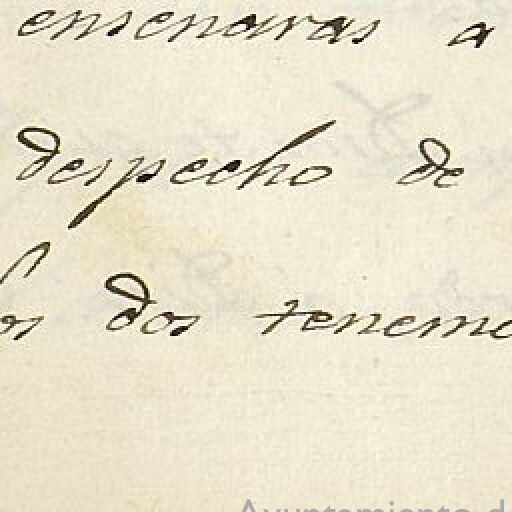 ensenaras a
despecho de
los dos tenemo
Ayuntamiento de